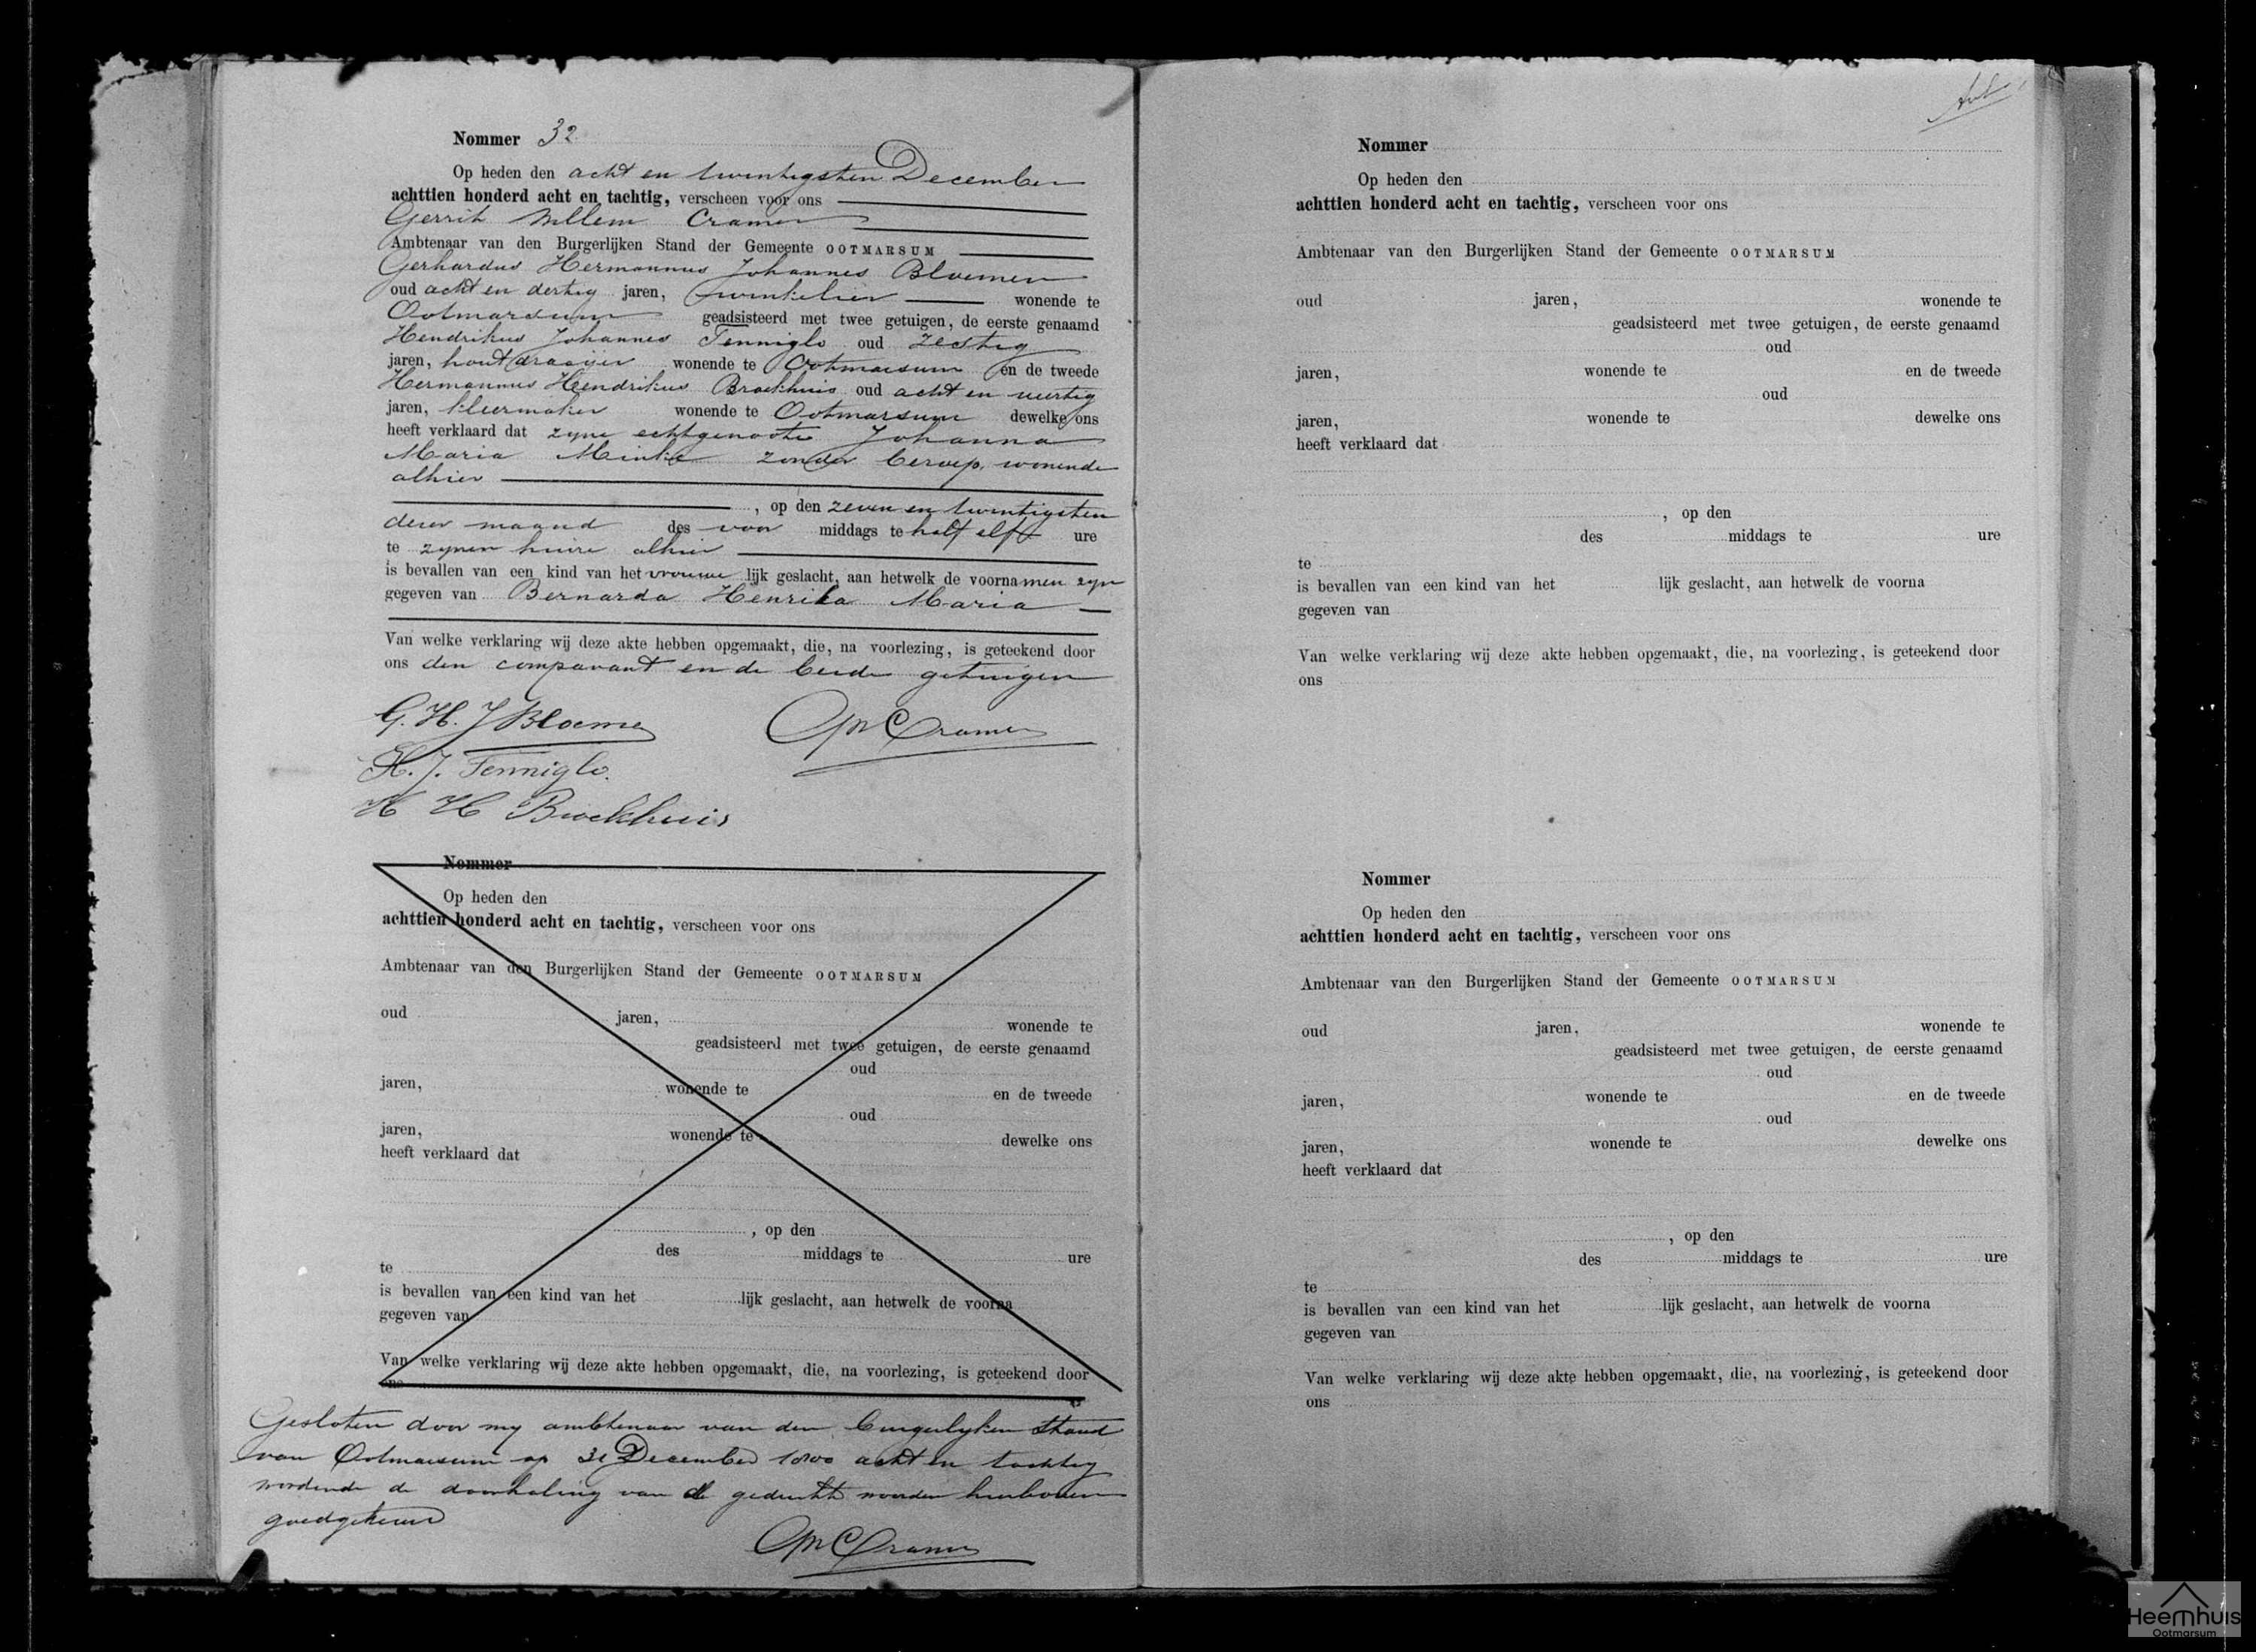 Nommer 32
Op heden den acht en twintigsten December
achttien honderd acht en tachtig, verscheen voor ons
Gerrit Willem Cramer
Ambtenaar van den Burgerlijken Stand der Gemeente OOTMARSUM
Gerhardus Hermannus Johannes Bloemen
oud acht en dertig jaren, winkelier wonende te
Ootmarsum geadsisteerd met twee getuigen, de eerste genaamd
Hendrikus Johannes Tenniglo oud zestig
jaren, houtdraaijer wonende te Ootmarsum en de tweede
Hermannus Hendrikus Broekhuis oud acht en veertig
jaren, kleermaker wonende te Ootmarsum dewelke ons
heeft verklaard dat zyne echtgenoote Johanna
Maria Meinke zonder beroep, wonende
alhier
, op den zeven en twintigsten
dezer maand des voor middags te half elf ure
te zynen huize alhier
is bevallen van een kind van het vrouwe lijk geslacht, aan hetwelk de voornamen zyn
gegeven van Bernarda Henrika Maria
Van welke verklaring wij deze akte hebben opgemaakt, die, na voorlezing, is geteekend door
ons den comparant en de beide getuigen
G. H. J Bloemen
GWCramer
H. J. Tenniglo.
H H Broekhuis
Nommer
Op heden den
achttien honderd acht en tachtig, verscheen voor ons
Ambtenaar van den Burgerlijken Stand der Gemeente OOTMARSUM
oud jaren, wonende te
geadsisteerd met twee getuigen, de eerste genaamd
oud
jaren, wonende te en de tweede
oud
jaren, wonende te dewelke ons
heeft verklaard dat
, op den
des middags te ure
te
is bevallen van een kind van het lijk geslacht, aan hetwelk de voorna
gegeven van
Van welke verklaring wij deze akte hebben opgemaakt, die, na voorlezing, is geteekend door
ons
Gesloten door my ambtenaar van den burgerlyken stand
van Ootmarsum op 31 December 1800 acht en tachtig
wordende de doorhaling van de gedrukte woorden hierboven
goedgekeurd
GWCramer
Nommer
Op heden den
achttien honderd acht en tachtig, verscheen voor ons
Ambtenaar van den Burgerlijken Stand der Gemeente OOTMARSUM
oud jaren, wonende te
geadsisteerd met twee getuigen, de eerste genaamd
oud
jaren, wonende te en de tweede
oud
jaren, wonende te dewelke ons
heeft verklaard dat
, op den
des middags te ure
te
is bevallen van een kind van het lijk geslacht, aan hetwelk de voorna
gegeven van
Van welke verklaring wij deze akte hebben opgemaakt, die, na voorlezing, is geteekend door
ons
Nommer
Op heden den
achttien honderd acht en tachtig, verscheen voor ons
Ambtenaar van den Burgerlijken Stand der Gemeente OOTMARSUM
oud jaren, wonende te
geadsisteerd met twee getuigen, de eerste genaamd
oud
jaren, wonende te en de tweede
oud
jaren, wonende te dewelke ons
heeft verklaard dat
, op den
des middags te ure
te
is bevallen van een kind van het lijk geslacht, aan hetwelk de voorna
gegeven van
Van welke verklaring wij deze akte hebben opgemaakt, die, na voorlezing, is geteekend door
ons
Heemhuis
Ootmarsum